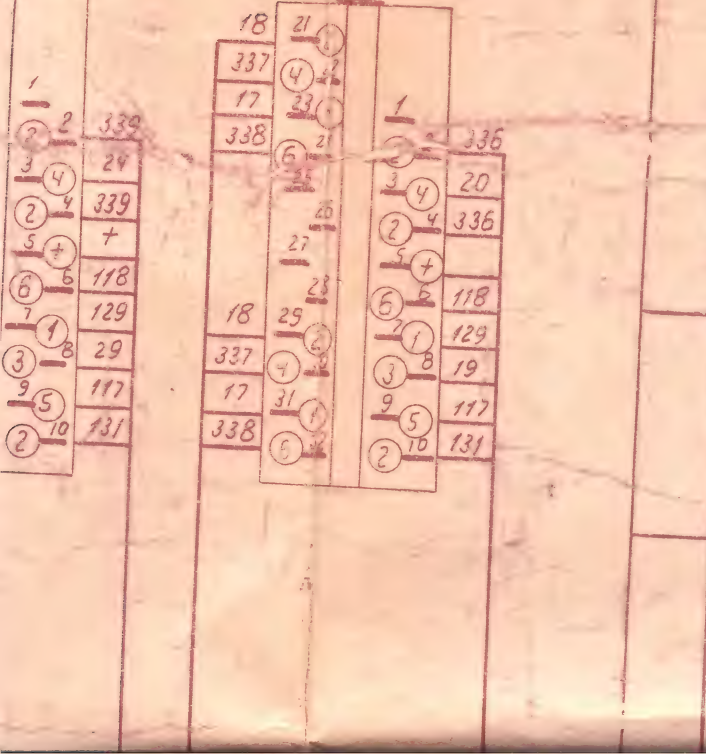 1
2 2 339
3 4 24
2 4 339
5 + +
6 6 118
7 1 129
3 8 29
9 5 117
2 10 131
18 21
337 4
17 23 1
338 6
25
26
27
28
18 29 2
337 4
17 31 1
338 6 32
1
2 2 336
3 4 20
2 4 336
5 +
6 6 118
7 1 129
3 8 19
9 5 117
2 10 131